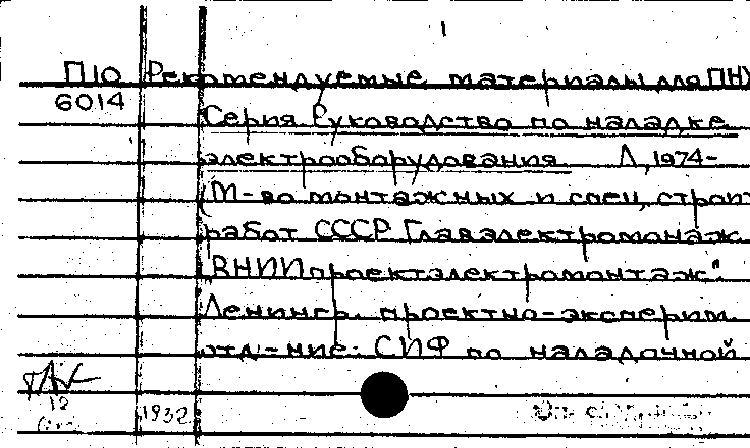 П10 Рекомендуемые материалы для ПНУ
6014
Серия Руководство по наладке
электрооборудования Л, 1974-
(М-во монтажных и спец, строит
работ СССР Главэлектромонаж
"ВНИИпроектэлектромонтаж"
Ленингр. проектно-эксперим.
отд-ние. СИФ по наладочной
12
1932